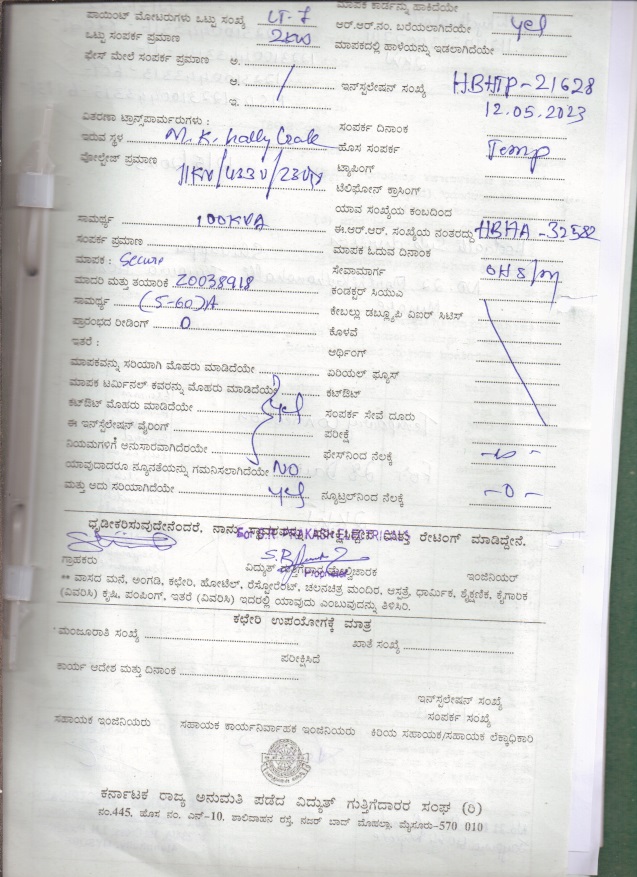 ಮಾಪಕ ಕಾರ್ಡನ್ನು ಹಾಕಿದೆಯೇ
ಪಾಯಿಂಟ್ ಮೋಟರುಗಳು ಒಟ್ಟು ಸಂಖ್ಯೆ LT-7 ಆರ್.ಆರ್.ನಂ. ಬರೆಯಲಾಗಿದೆಯೇ yes
ಒಟ್ಟು ಸಂಪರ್ಕ ಪ್ರಮಾಣ 2KW ಮಾಪಕದಲ್ಲಿ ಹಾಳೆಯನ್ನು ಇಡಲಾಗಿದೆಯೇ
ಫೇಸ್ ಮೇಲೆ ಸಂಪರ್ಕ ಪ್ರಮಾಣ ಅ.
ಆ. ಇನ್‌ಸ್ಟಲೇಷನ್ ಸಂಖ್ಯೆ HBHTP-21628
ಇ. 12.05.2023
ವಿತರಣಾ ಟ್ರಾನ್ಸ್‌ಪಾರ್ಮರುಗಳು : ಸಂಪರ್ಕ ದಿನಾಂಕ
ಇರುವ ಸ್ಥಳ M.K. ಹೊಸ ಸಂಪರ್ಕ Temp
ವೋಲ್ಟೇಜ್ ಪ್ರಮಾಣ 11KV/433V/230V ಟ್ಯಾಪಿಂಗ್
ಟೆಲಿಫೋನ್ ಕ್ರಾಸಿಂಗ್
ಯಾವ ಸಂಖ್ಯೆಯ ಕಂಬದಿಂದ
ಸಾಮರ್ಥ್ಯ 100KVA ಈ.ಆರ್.ಆರ್. ಸಂಖ್ಯೆಯ ನಂತರದ್ದು HBHA-32582
ಸಂಪರ್ಕ ಪ್ರಮಾಣ ಮಾಪಕ ಓದುವ ದಿನಾಂಕ
ಮಾಪಕ : Secure ಸೇವಾಮಾರ್ಗ
ಮಾದರಿ ಮತ್ತು ತಯಾರಿಕೆ 20038918 ಕಂಡಕ್ಟರ್ ಸಿಯುಎ
ಸಾಮರ್ಥ್ಯ (5-60)A ಕೇಬಲ್ಲು ಡಬ್ಲ್ಯೂಪಿ ವಿಐರ್ ಸಿಟಿಸ್
ಪ್ರಾರಂಭದ ರೀಡಿಂಗ್ 0 ಕೊಳವೆ
ಇತರೆ : ಅರ್ಥಿಂಗ್
ಮಾಪಕವನ್ನು ಸರಿಯಾಗಿ ಮೊಹರು ಮಾಡಿದೆಯೇ ಏರಿಯಲ್ ಫ್ಯೂಸ್
ಮಾಪಕ ಟರ್ಮಿನಲ್ ಕವರನ್ನು ಮೊಹರು ಮಾಡಿದೆಯೇ ಕಟ್‌ಔಟ್
ಕಟ್‌ಔಟ್ ಮೊಹರು ಮಾಡಿದೆಯೇ yes ಸಂಪರ್ಕ ಸೇವೆ ದೂರು
ಈ ಇನ್‌ಸ್ಟಲೇಷನ್ ವೈರಿಂಗ್ ಪರೀಕ್ಷೆ
ನಿಯಮಗಳಿಗೆ ಅನುಸಾರವಾಗಿದೆರಯೇ ಫೇಸ್‌ನಿಂದ ನೆಲಕ್ಕೆ
ಯಾವುದಾದರೂ ನ್ಯೂನತೆಯನ್ನು ಗಮನಿಸಲಾಗಿದೆಯೇ NO
ಮತ್ತು ಅದು ಸರಿಯಾಗಿದೆಯೇ yes ನ್ಯೂಟ್ರಲ್‌ನಿಂದ ನೆಲಕ್ಕೆ -0-
ಧೃಡೀಕರಿಸುವುದೇನೆಂದರೆ, ನಾನು ಮತ್ತು ರೇಟಿಂಗ್ ಮಾಡಿದ್ದೇನೆ.
For PRAKASH ELECTRICALS
ಗ್ರಾಹಕರು ವಿದ್ಯುತ್ ಇಂಜಿನಿಯರ್
Proprietor
** ವಾಸದ ಮನೆ, ಅಂಗಡಿ, ಕಛೇರಿ, ಹೋಟೆಲ್, ರೆಸ್ಟೋರೆಂಟ್, ಚಲನಚಿತ್ರ ಮಂದಿರ, ಆಸ್ಪತ್ರೆ, ಧಾರ್ಮಿಕ, ಶೈಕ್ಷಣಿಕ, ಕೈಗಾರಿಕ
(ವಿವರಿಸಿ) ಕೃಷಿ, ಪಂಪಿಂಗ್, ಇತರೆ (ವಿವರಿಸಿ) ಇದರಲ್ಲಿ ಯಾವುದು ಎಂಬುವುದನ್ನು ತಿಳಿಸಿರಿ.
ಕಛೇರಿ ಉಪಯೋಗಕ್ಕೆ ಮಾತ್ರ
ಮಂಜೂರಾತಿ ಸಂಖ್ಯೆ ಖಾತೆ ಸಂಖ್ಯೆ
ಪರೀಕ್ಷಿಸಿದೆ
ಕಾರ್ಯ ಆದೇಶ ಮತ್ತು ದಿನಾಂಕ
ಇನ್‌ಸ್ಟಲೇಷನ್ ಸಂಖ್ಯೆ
ಸಂಪರ್ಕ ಸಂಖ್ಯೆ
ಸಹಾಯಕ ಇಂಜಿನಿಯರು ಸಹಾಯಕ ಕಾರ್ಯನಿರ್ವಾಹಕ ಇಂಜಿನಿಯರು ಕಿರಿಯ ಸಹಾಯಕ/ಸಹಾಯಕ ಲೆಕ್ಕಾಧಿಕಾರಿ
ಕರ್ನಾಟಕ ರಾಜ್ಯ ಅನುಮತಿ ಪಡೆದ ವಿದ್ಯುತ್ ಗುತ್ತಿಗೆದಾರರ ಸಂಘ (ರಿ)
ನಂ.445, ಹೊಸ ನಂ. ಎನ್-10, ಶಾಲಿವಾಹನ ರಸ್ತೆ, ನಜರ್ ಬಾದ್ ಮೊಹಲ್ಲಾ, ಮೈಸೂರು-570 010